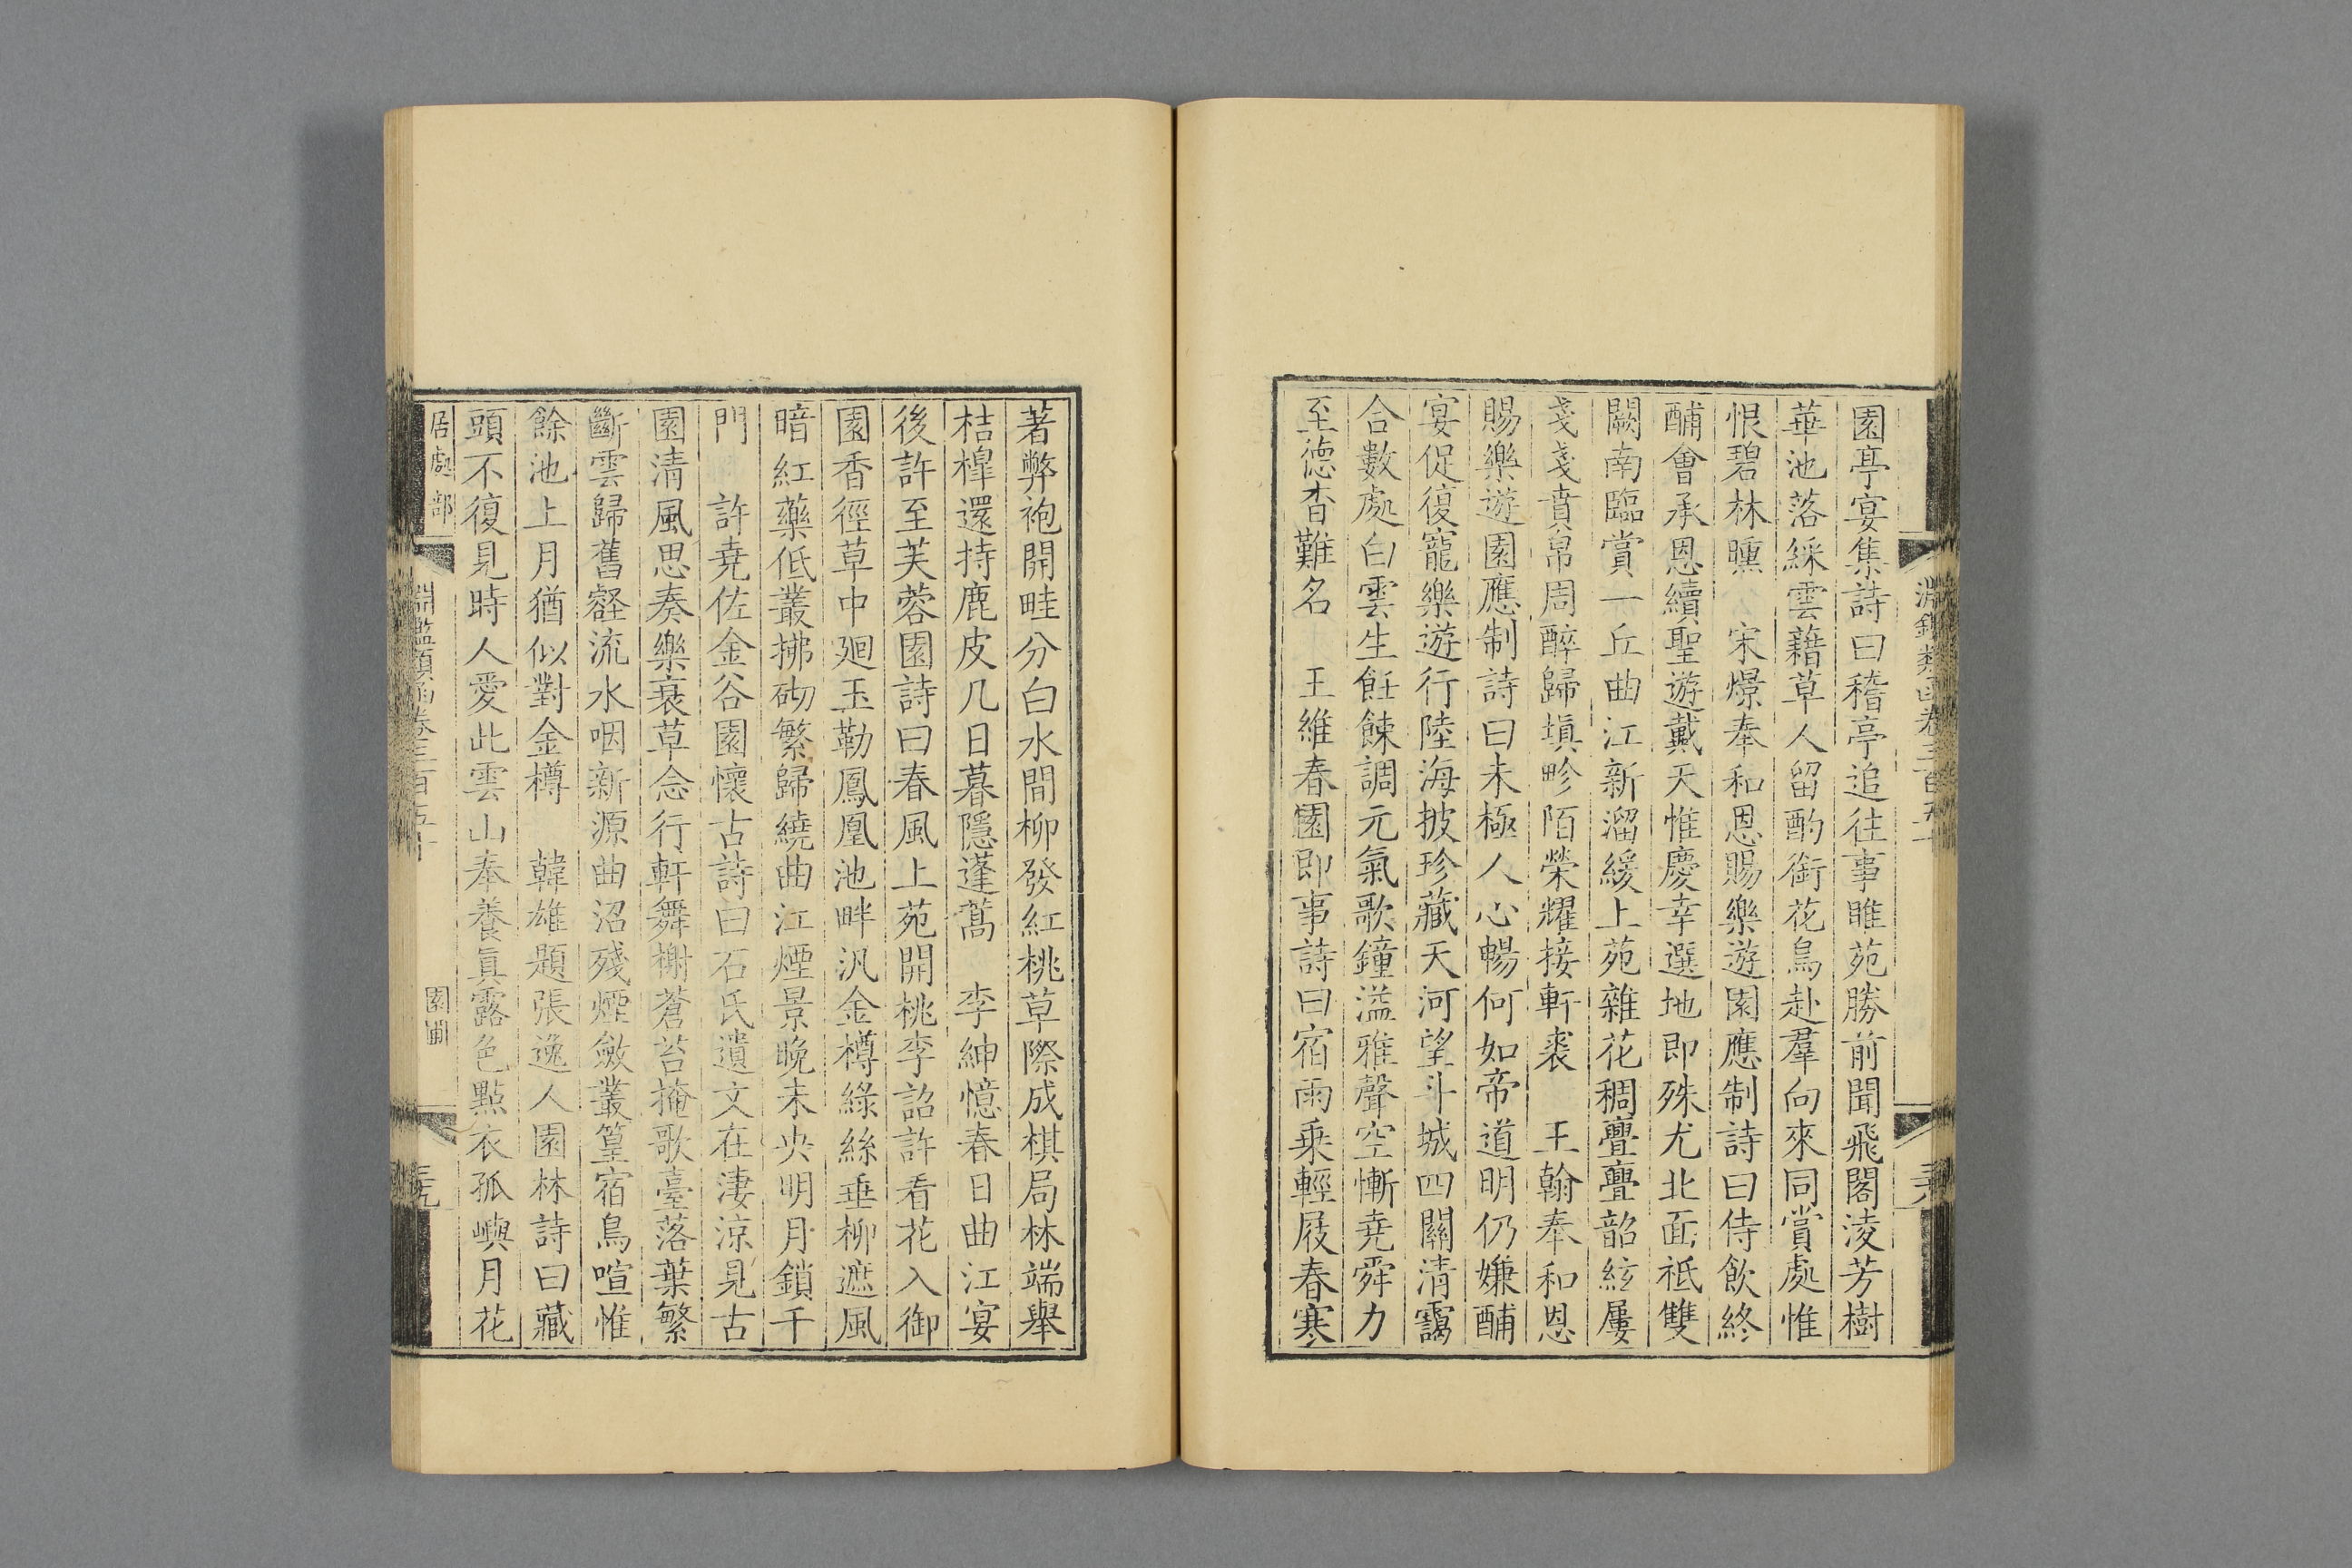 淵鑑類函卷三百五十
園亭宴集詩曰稽亭追往事睢苑勝前聞飛閣淩芳樹
華池落綵雲藉草人留酌銜花鳥赴羣向來同賞處惟
恨碧林曛　宋璟奉和恩賜樂遊園應制詩曰侍飲終
酺會承恩續聖遊戴天惟慶幸選地即殊尤北面祗雙
闕南臨賞一丘曲江新溜緩上苑雜花稠亹亹韶絃屢
戔戔賁帛周醉歸塡畛陌榮耀接軒裘　王翰奉和恩
賜樂遊園應制詩曰未極人心暢何如帝道明仍嫌酺
宴促復寵樂遊行陸海披珍藏天河望斗城四關清靄
合數處白雲生飪餗調元氣歌鐘溢雅聲空慚堯舜力
至德杳難名　王維春園即事詩曰宿雨乗輕屐春寒
著弊袍開畦分白水間柳發紅桃草際成棋局林端舉
桔槹還持鹿皮几日暮隱蓬蒿　李紳憶春日曲江宴
後許至芙蓉園詩曰春風上苑開桃李詔許看花入御
園香徑草中廻玉勒鳳凰池畔汎金樽綠絲垂柳遮風
暗紅藥低叢拂砌繁歸繞曲江煙景晚未央明月鎖千
門　許堯佐金谷園懷古詩曰石氏遺文在淒涼見古
園清風思奏樂衰草念行軒舞榭蒼苔掩歌臺落葉繁
斷雲歸舊壑流水咽新源曲沼殘煙斂叢篁宿鳥喧惟
餘池上月猶似對金樽　韓雄題張逸人園林詩曰藏
頭不復見時人愛此雲山奉養眞露色點衣孤嶼月花
居處部
淵鑑類函卷三百五十
園圃